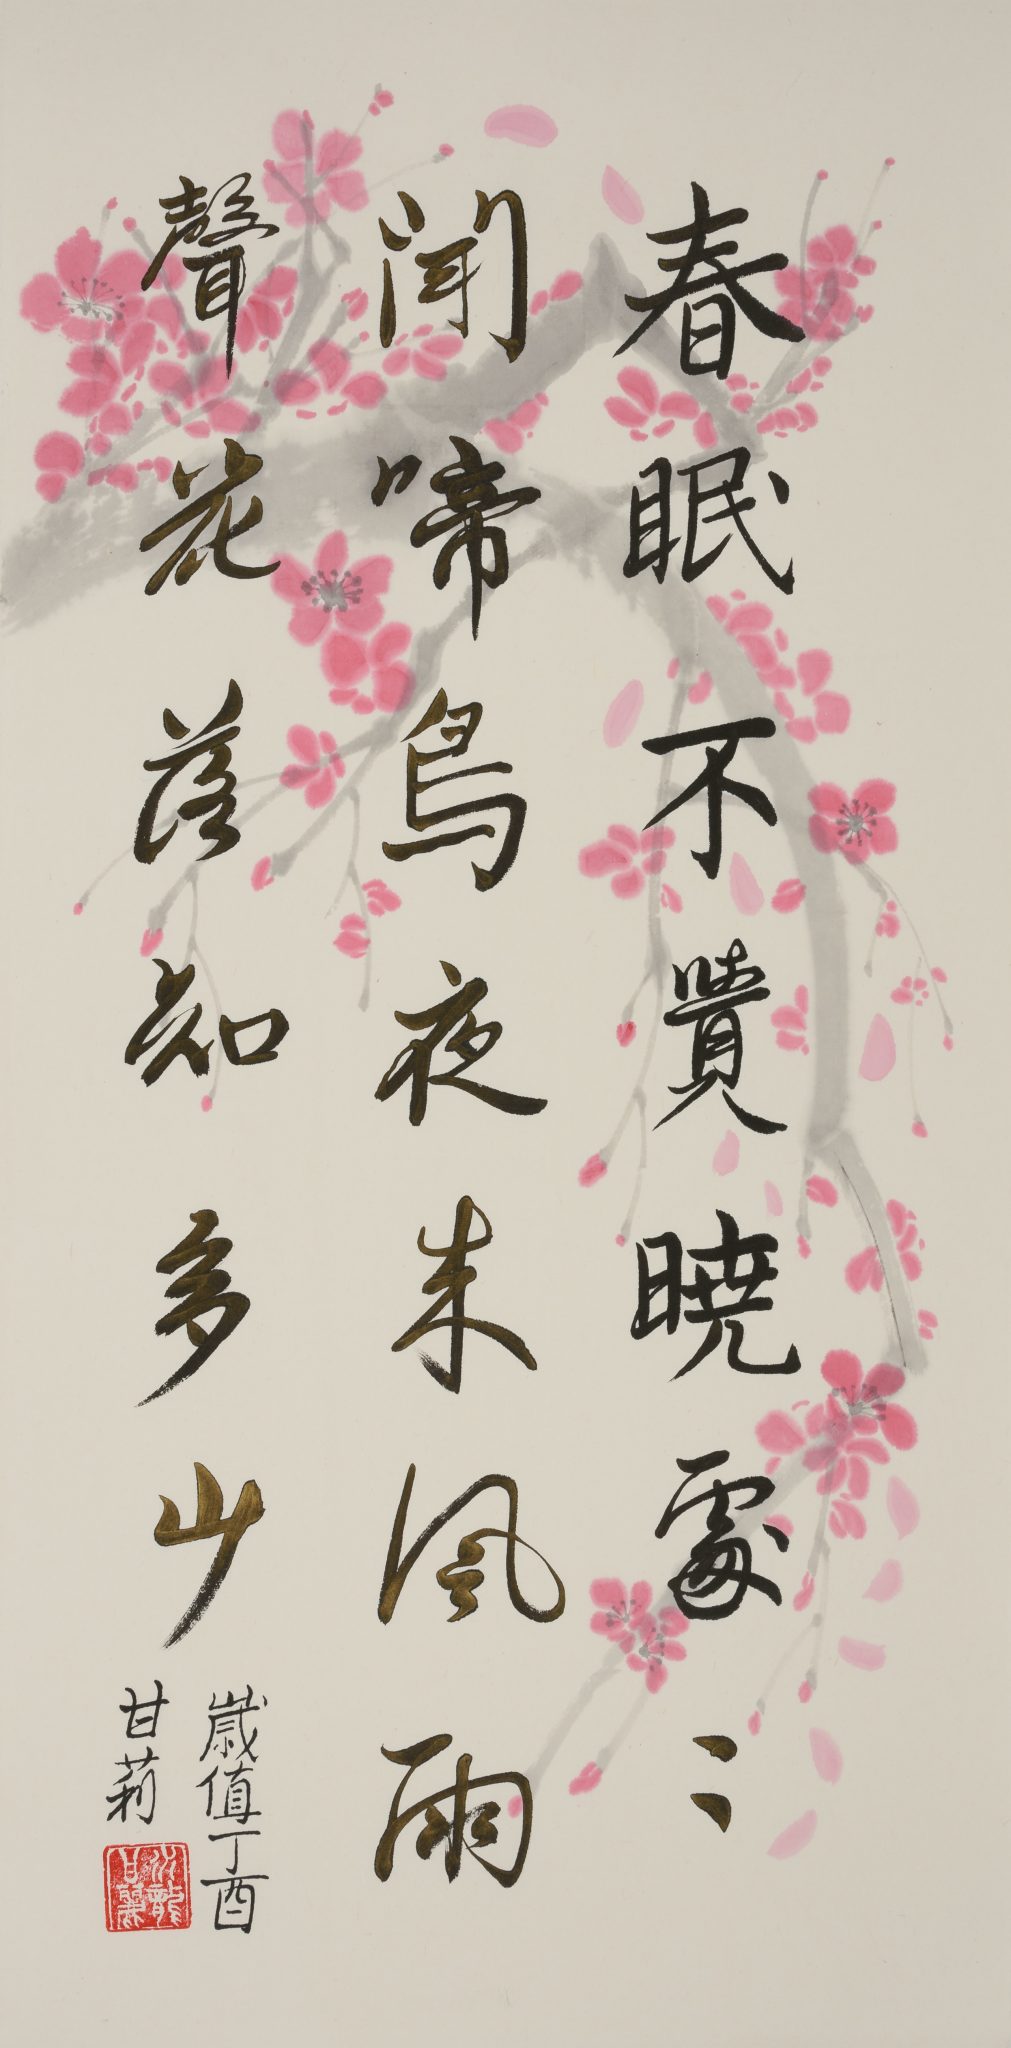 春眠不覺曉處〻
聞啼鳥夜来風雨
聲花落知多少
歳值丁酉
甘莉